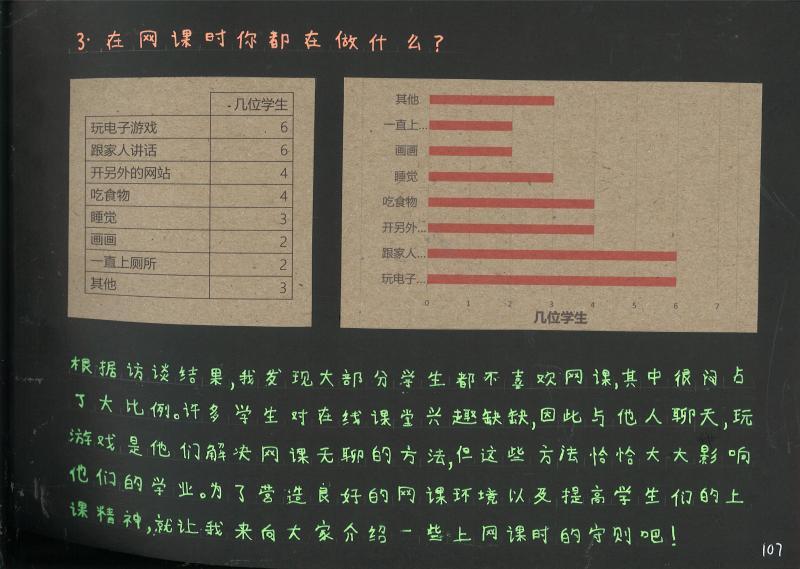 3. 在网课时你都在做什么?
几位学生
玩电子游戏 6
跟家人讲话 6
开另外的网站 4
吃食物 4
睡觉 3
画画 2
一直上厕所 2
其他 3
其他
一直上...
画画
睡觉
吃食物
开另外...
跟家人...
玩电子...
0 1 2 3 4 5 6 7
几位学生
根据访谈结果,我发现大部分学生都不喜欢网课,其中很闷占
了大比例。许多学生对在线课堂兴趣缺缺,因此与他人聊天,玩
游戏是他们解决网课无聊的方法,但这些方法恰恰大大影响
他们的学业。为了营造良好的网课环境以及提高学生们的上
课精神,就让我来向大家介绍一些上网课时的守则吧!
107